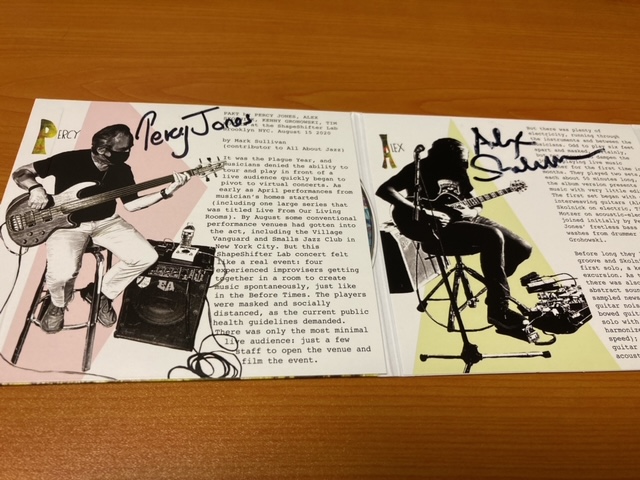 PERCY
Percy Jones
PAKT is PERCY JONES, ALEX
KENNY GROHOWSKI, TIM
at the ShapeShifter Lab
Brooklyn NYC. August 15 2020
by Mark Sullivan
(contributor to All About Jazz)
It was the Plague Year, and
musicians denied the ability to
tour and play in front of a
live audience quickly began to
pivot to virtual concerts. As
early as April performances from
musician's homes started
(including one large series that
was titled Live From Our Living
Rooms). By August some conventional
performance venues had gotten into
the act, including the Village
Vanguard and Smalls Jazz Club in
New York City. But this
ShapeShifter Lab concert felt
like a real event: four
experienced improvisers getting
together in a room to create
music spontaneously, just like
in the Before Times. The players
were masked and socially
distanced, as the current public
health guidelines demanded.
There was only the most minimal
live audience: just a few
staff to open the venue and
film the event.
EA
ALEX
Alex
But there was plenty of
electricity, running through
the instruments and between the
musicians. Odd to play six feet
apart and masked
deepen the
playing live music
for the first time in
months. They played two sets,
each about 50 minutes long,
the album version presents
with very little edi
The first set began with
interweaving guitars
Skolnick on electric,
Motzer on acoustic-elec
joined initially by Pe
Jones' fretless bass
washes from drummer
Grohowski.
Before long they
groove and Skolni
first solo, a
excursion. As
there was also
abstract soun
sampled
guitar noi
bowed guit
solo with
harmoni
speed);
guitar
acoust